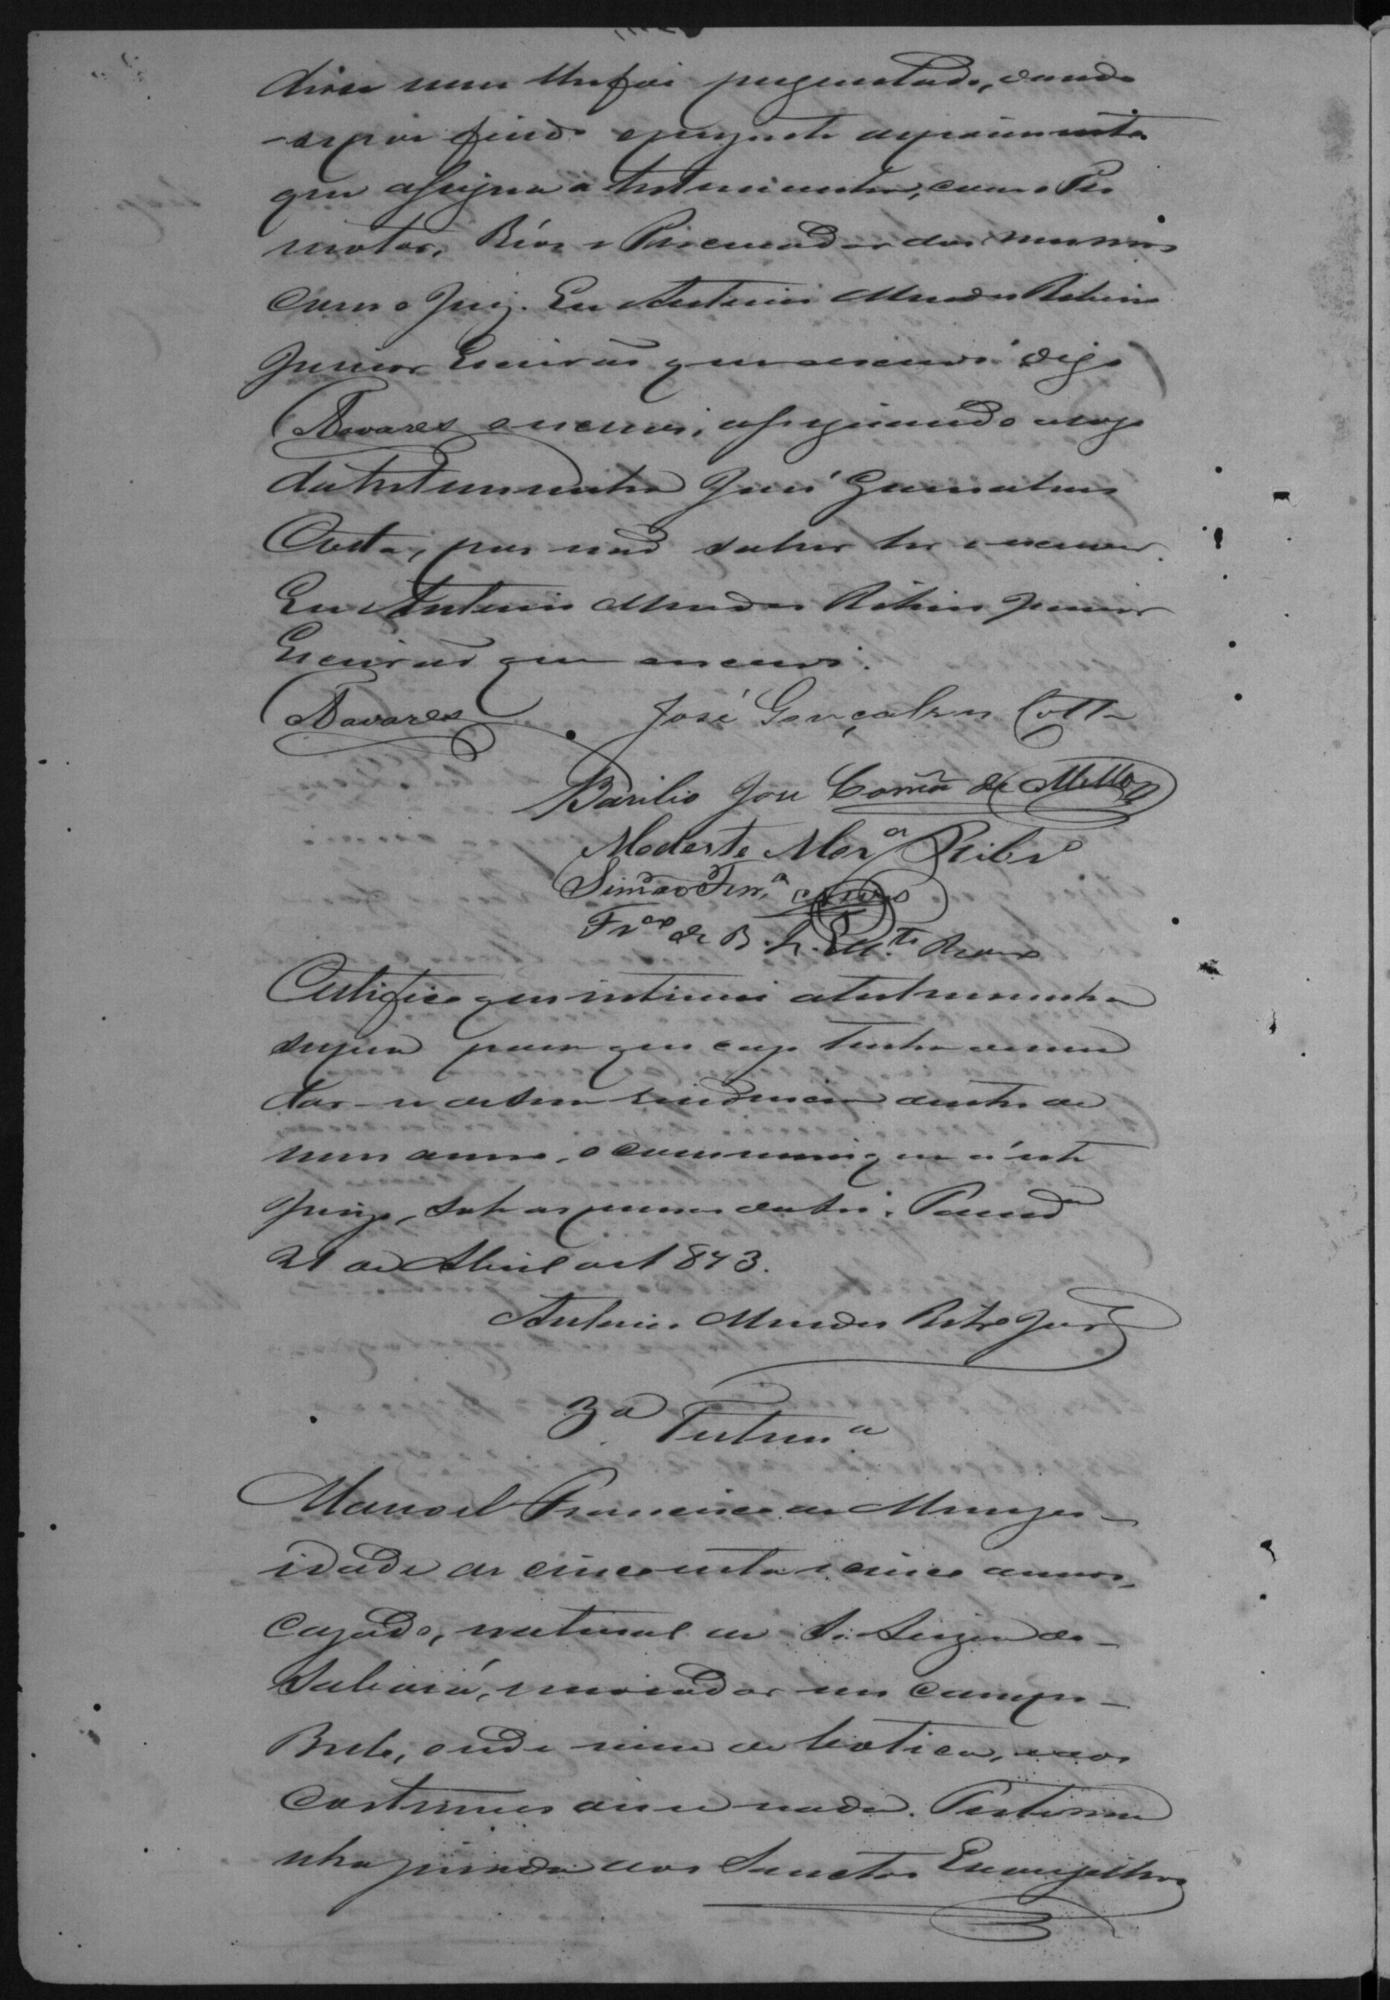 disse nem lhe foi perguntado, dando
-se por findo o presente depoimento
que assigna a testemunha, com o Pro
motor, Réos e Procurador dos mesmos
com o Juiz. Eu Antonio Mendes Ribeiro
Junior Escrivão que escrevi digo
Tavares escrevi, assignando a rogo
da testemunha José Gonçalves
Cotta, por não saber ler e escrever.
Eu Antonio Mendes Ribeiro Junior
Escrivão que escrevi.
Tavares José Gonçalves Cotta
Basilio José Corrêa de Mello
Modesto Mor.ª Ribrº
Simão Ferr.ª
Fr.co de B.
Certifico que intimei a testemunha
supra para que caso tenha de mu
dar-se de sua residencia dentro de
um anno, o communique a este
Juizo, sob as penas da lei.
21 de Abril de 1873.
Antonio Mendes Ribrº Junr
3ª Testemª
Manoel Francisco de Menezes
idade de cincoenta e cinco annos,
cazado, natural de S. Luzia de
Sabará, morador no Campo
Bello, onde vive de botica, e aos
costumes disse nada. Testemu
nha jurada aos Sanctos Evangelhos